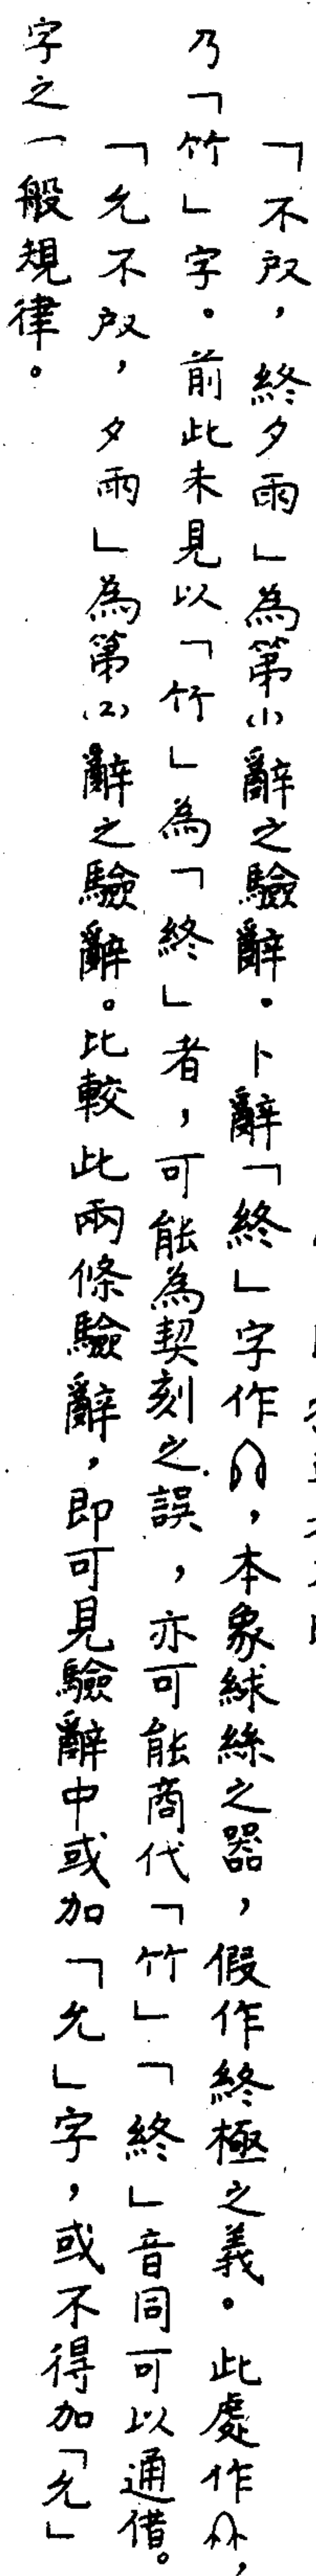 「不㱿，終夕雨」為第(1)辭之驗辭。卜辭「終」字作，本象綠絲之器，假作終極之義。此處作，
乃「竹」字。前此未見以「竹」為「終」者，可能為契刻之誤，亦可能商代「竹」「終」音同可以通借。
「允不㱿，夕雨」為第(2)辭之驗辭。比較此兩條驗辭，即可見驗辭中或加「允」字，或不得加「允」
字之一般規律。